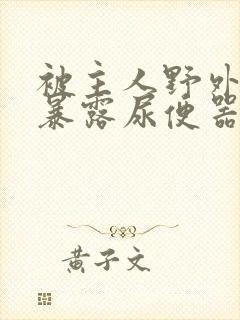 被主人野外
暴露尿便器
黄子文